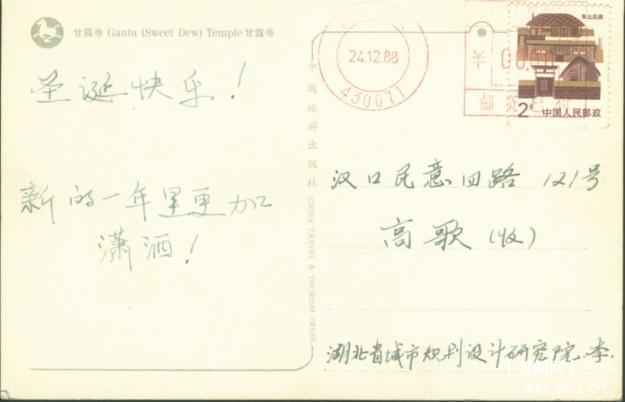 甘露寺 Ganlu (Sweet Dew) Temple 甘露寺
圣诞快乐!
新的一年里更加
潇洒!
中国旅游出版社 CHINA TRAVEL & TOURISM PRESS
24.12.88
430071
邮资已付
东北民居
2分
中国人民邮政
汉口民意四路 121号
高歌(收)
湖北省城市规划设计研究院.李.